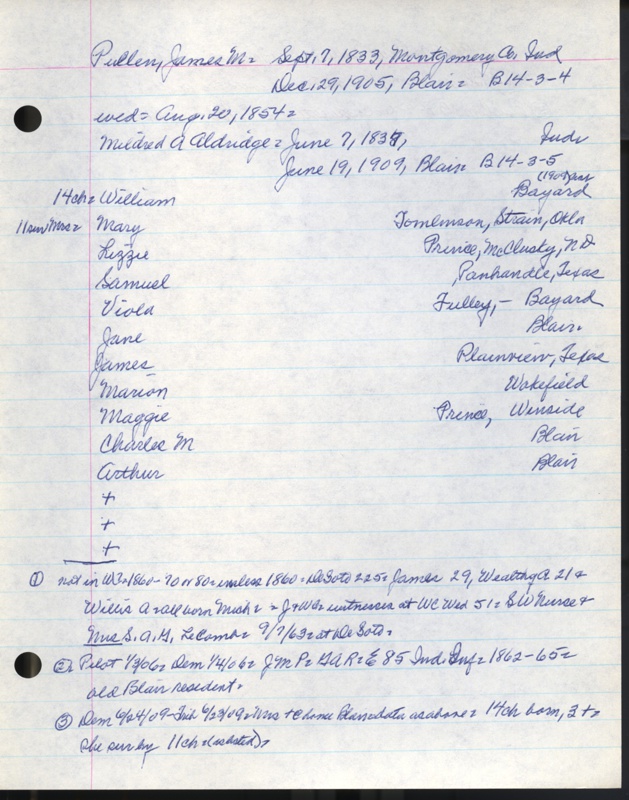 Pullen, James M= Sept. 7, 1833, Montgomery Co. Ind
Dec. 29, 1905, Blair= B14-3-4
wed= Aug. 20, 1854=
Mildred A Aldridge= June 7, 1837, Ind
June 19, 1909, Blair= B14-3-5
(1909)
14ch= William Bayard
11 surv Mrs= Mary Tomlenson, Strain, Okla
Lizzie Prince, McClusky, ND
Samuel Panhandle, Texas
Viola Fulley, - Bayard
Jane Blair.
James Plainview, Texas
Marion Wakefield
Maggie Prince, Winside
Charles M Blair
Arthur Blair
+
+
+
① not in WC=1860-70 or 80= unless 1860= DeSoto 225= James 29, Wealthy A 21 &
Willis A = all born Mich= = J & WB= witnesses at WC Wed 51= SW Nurse &
Mrs S. A. G. LeComb= 9/7/63= at DeSoto=
②= Pilot 1/3/06= Dem 1/4/06= J M P= GAR= E 85 Ind. Inf= 1862-65=
old Blair resident=
③ Dem 6/24/09= Trib 6/23/09= Mrs + home Blair= data as above= 14ch born, 3 +=
she surv by 11ch (as listed)=